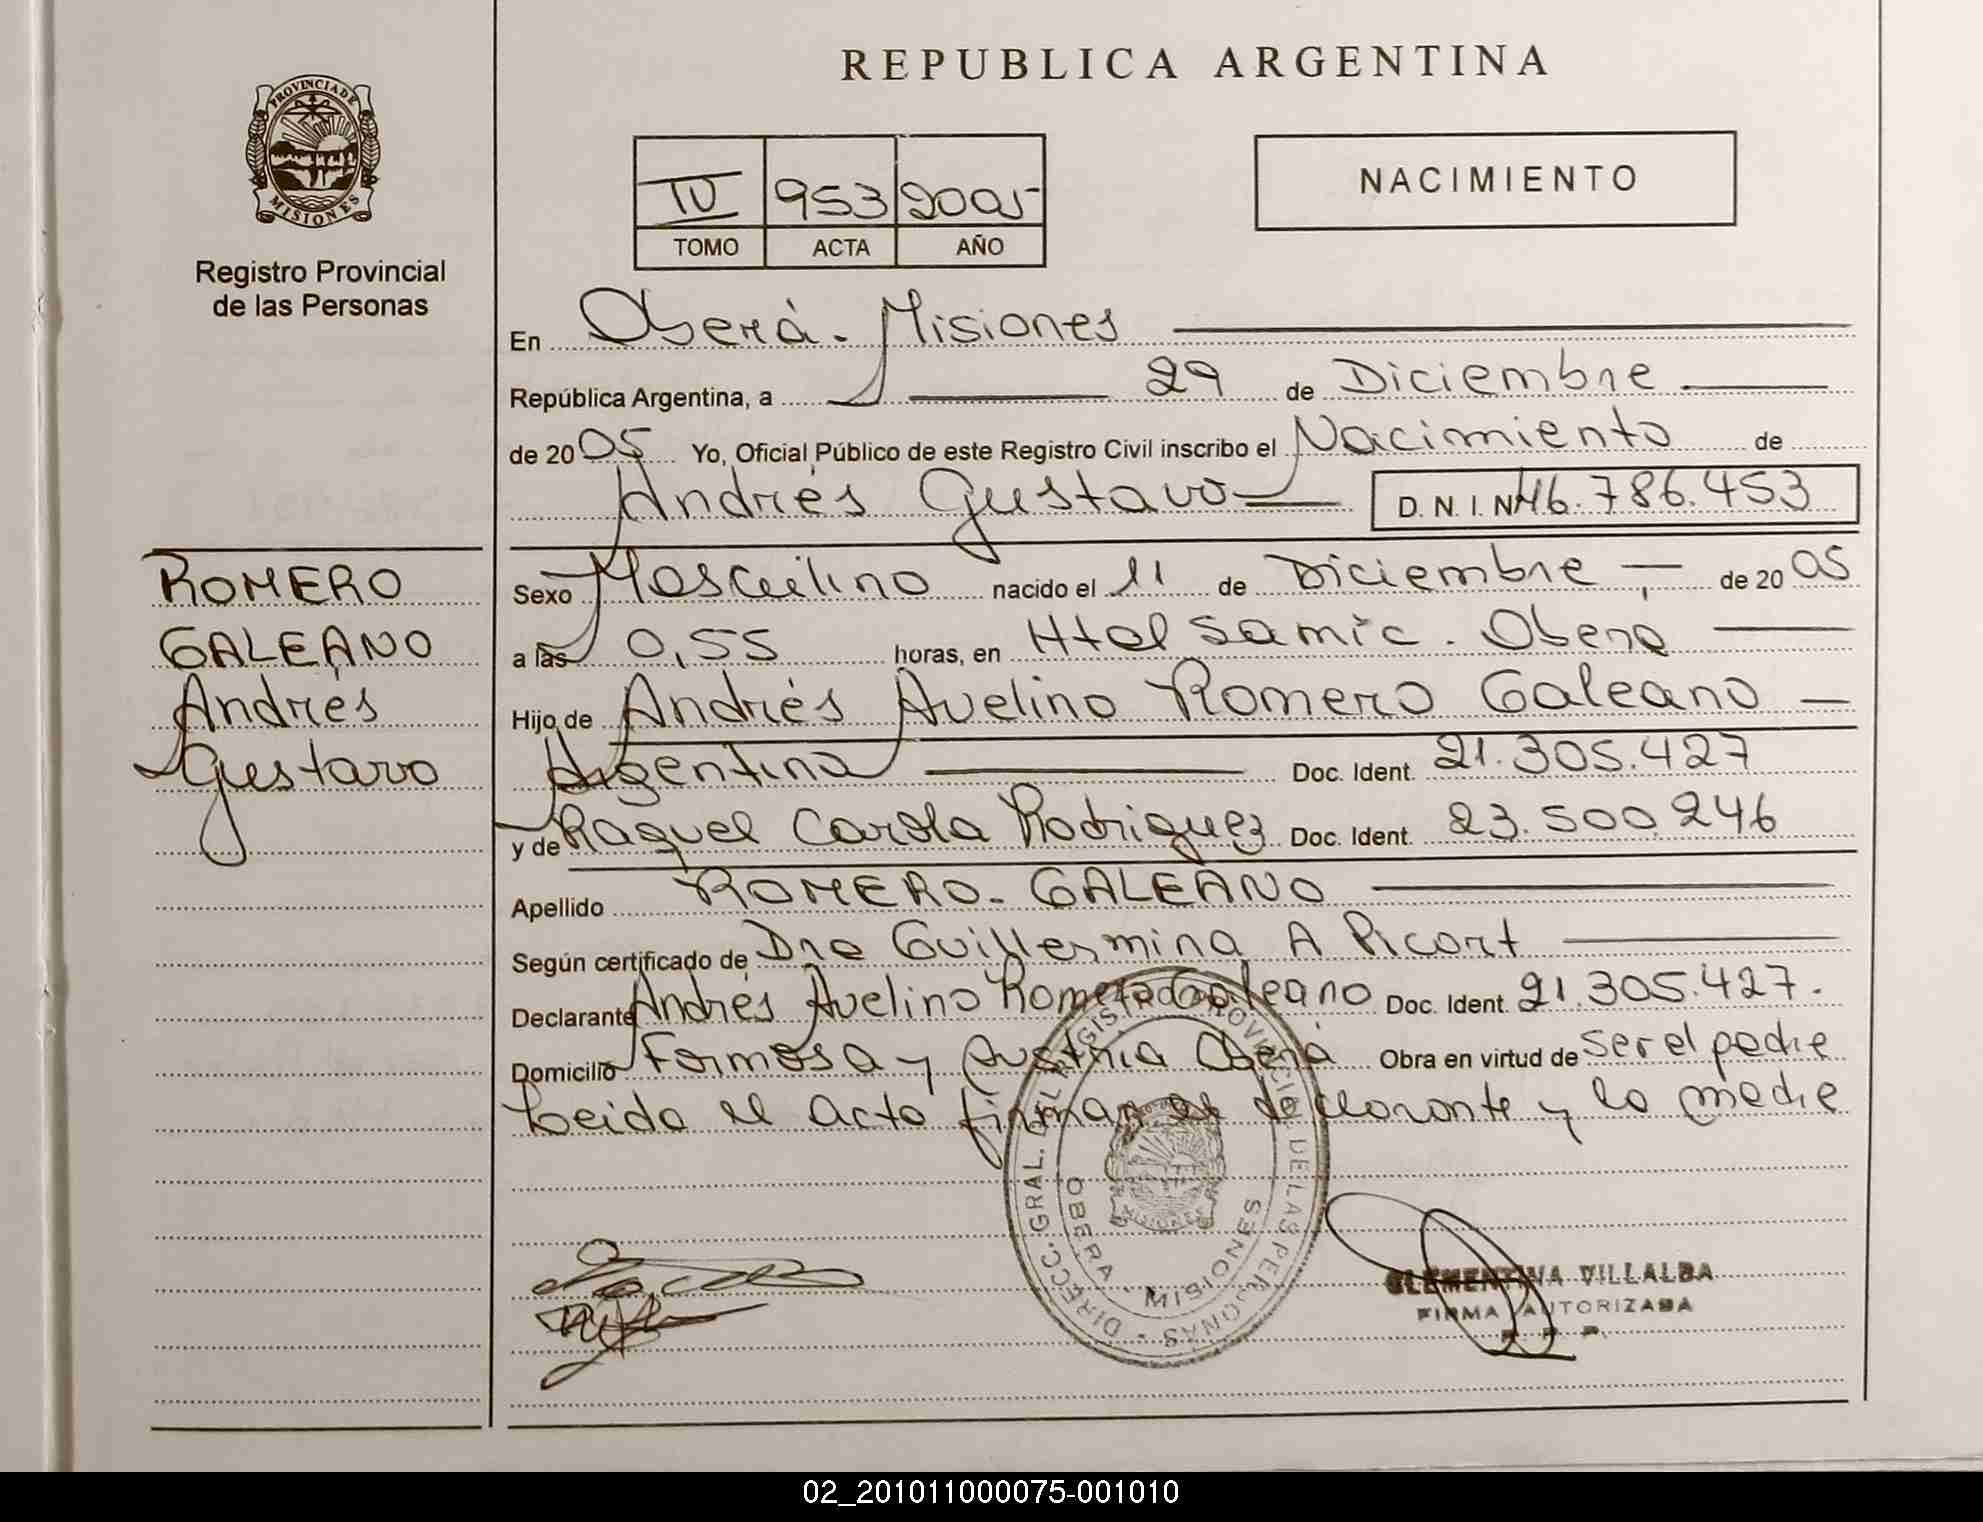 REPUBLICA ARGENTINA
PROVINCIA DE
MISIONES
Registro Provincial
de las Personas
IV 953 2005
TOMO ACTA AÑO
NACIMIENTO
En Oberá - Misiones
República Argentina, a 29 de Diciembre
de 20 05 Yo, Oficial Público de este Registro Civil inscribo el Nacimiento de
Andrés Gustavo D. N. I. Nº 46.786.453
ROMERO
GALEANO
Andrés
Gustavo
Sexo Masculino nacido el 11 de Diciembre de 20 05
a las 0,55 horas, en Htal Samic. Oberá
Hijo de Andrés Avelino Romero Galeano
Argentina Doc. Ident. 21.305.427
y de Raquel Carola Rodriguez Doc. Ident. 23.500.246
Apellido ROMERO - GALEANO
Según certificado de Dra Guillermina A Picort
Declarante Andrés Avelino Romero Galeano Doc. Ident. 21.305.427.
Domicilio Formosa y Austria Oberá Obra en virtud de ser el padre
Leida el acta firman el declarante y la madre
DIRECC. GRAL. DEL REGISTRO PROVINCIAL DE LAS PERSONAS
OBERA - MISIONES
MISIONES
CLEMENTINA VILLALBA
FIRMA AUTORIZADA
02_201011000075-001010